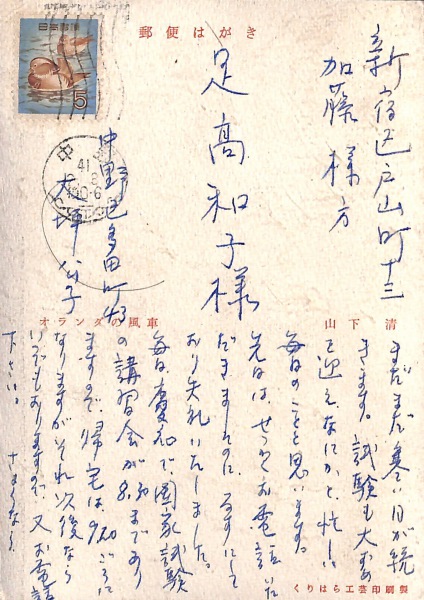 郵便はがき
日本郵便
5
新宿区戸山町十三
加藤様方
足高和子様
中野区多田町
大坪公子
中
41
オランダの風車
山下清
まだまだ寒い日が続
きます。試験も大づめ
を迎え、なにかと忙しい
毎日のことと思います。
先日は、せっかくお電話いた
だきましたのに、るすにして
おり失礼いたしました。
毎日、慶応で、国家試験
の講習会が8.30まであり
ますので、帰宅は、9.30ごろに
なりますがそれ以後なら
いつでもおりますので、又お電話
下さい。さようなら。
くりはら工芸印刷製